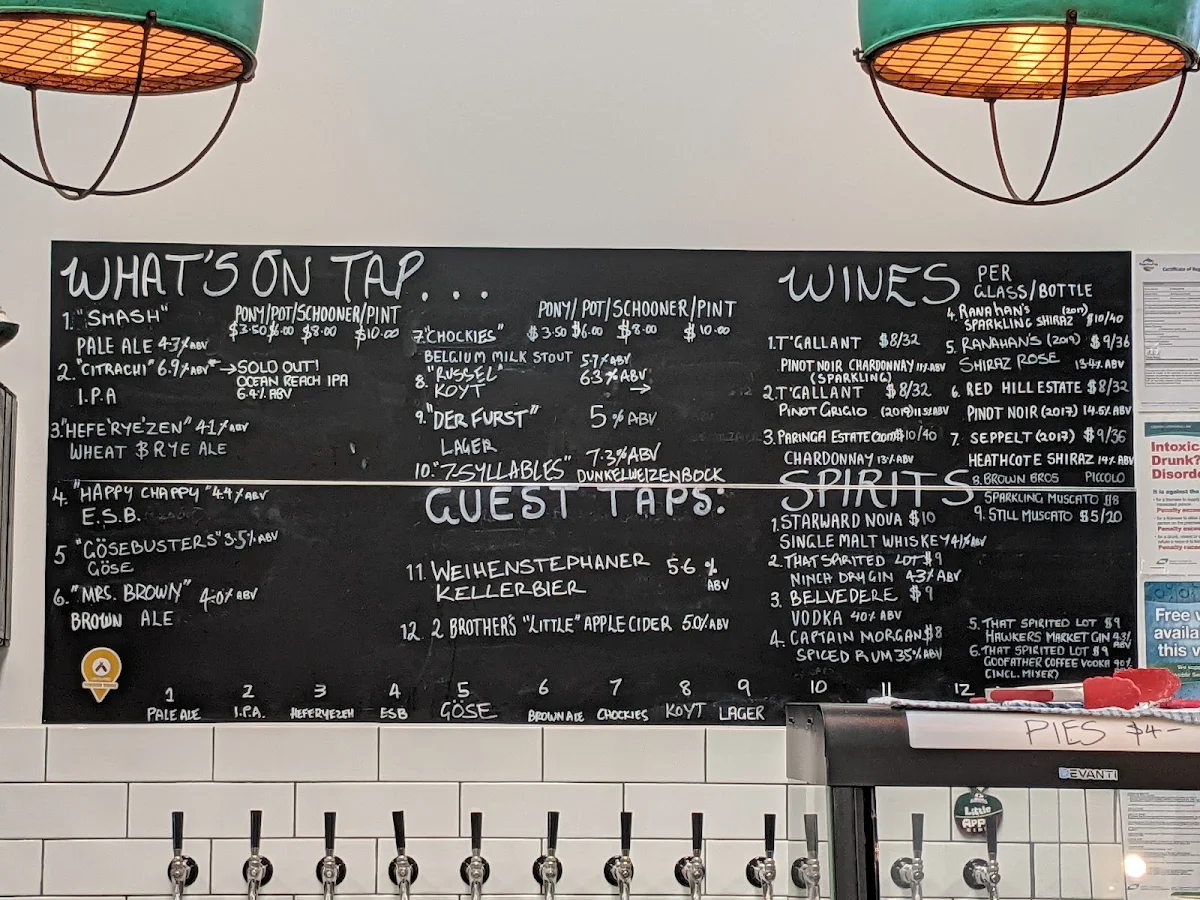 WHAT'S ON TAP...
PONY/POT/SCHOONER/PINT
1. "SMASH" $3.50 $6.00 $8.00 $10.00
PALE ALE 4.7% ABV
2. "CITRACHI" 6.9% ABV → SOLD OUT!
OCEAN REACH IPA
I.P.A 6.4% ABV
3. "HEFE'RYE'ZEN" 4.1% ABV
WHEAT $ RYE ALE
4. "HAPPY CHAPPY" 4.4% ABV
E.S.B.
5 "GÖSEBUSTERS" 3.5% ABV
GÖSE
6. "MRS. BROWN" 4.0% ABV
BROWN ALE
PONY/POT/SCHOONER/PINT
7. "CHOCKIES" $3.50 $6.00 $8.00 $10.00
BELGIUM MILK STOUT 5.7% ABV
8. "RUSSEL" 6.3% ABV
KOYT →
9. "DER FURST" 5% ABV
LAGER
10. "7-SYLLABLES" 7.3% ABV
DUNKELWEIZENBOCK
GUEST TAPS:
11. WEIHENSTEPHANER 5.6 %
KELLERBIER ABV
12. 2 BROTHER'S "LITTLE" APPLE CIDER 5.0% ABV
WINES PER
GLASS/BOTTLE
1. T'GALLANT $8/32
PINOT NOIR CHARDONNAY 11% ABV
(SPARKLING)
2. T'GALLANT $8/32
PINOT GRIGIO (2019) 11.5% ABV
3. PARINGA ESTATE $10/40
CHARDONNAY 13% ABV
4. RANAHan's (2017)
SPARKLING SHIRAZ $10/40
5. RANAHAN'S (2019) $9/36
SHIRAZ ROSE 13.4% ABV
6. RED HILL ESTATE $8/32
PINOT NOIR (2017) 14.5% ABV
7. SEPPELT (2017) $9/36
HEATHCOTE SHIRAZ 14% ABV
8. BROWN BROS PICCOLO
SPARKLING MUSCATO $8
9. STILL MUSCATO $5/20
SPIRITS
1. STARWARD NOVA $10
SINGLE MALT WHISKEY 41% ABV
2. THAT SPIRITED LOT $9
NINCH DRY GIN 43% ABV
3. BELVEDERE $9
VODKA 40% ABV
4. CAPTAIN MORGAN $8
SPICED RUM 35% ABV
5. THAT SPIRITED LOT $9
HAWKERS MARKET GIN 43% ABV
6. THAT SPIRITED LOT $9
GODFATHER COFFEE VODKA ABV
(INCL. MIXER)
1 2 3 4 5 6 7 8 9 10 11 12
PALE ALE I.P.A. HEFERYEZEN ESB GÖSE BROWN ALE CHOCKIES KOYT LAGER
PIES $4-
DEVANTI
Little
APP
Intoxic
Drunk?
Disord
It is against the
Free v
availa
this v